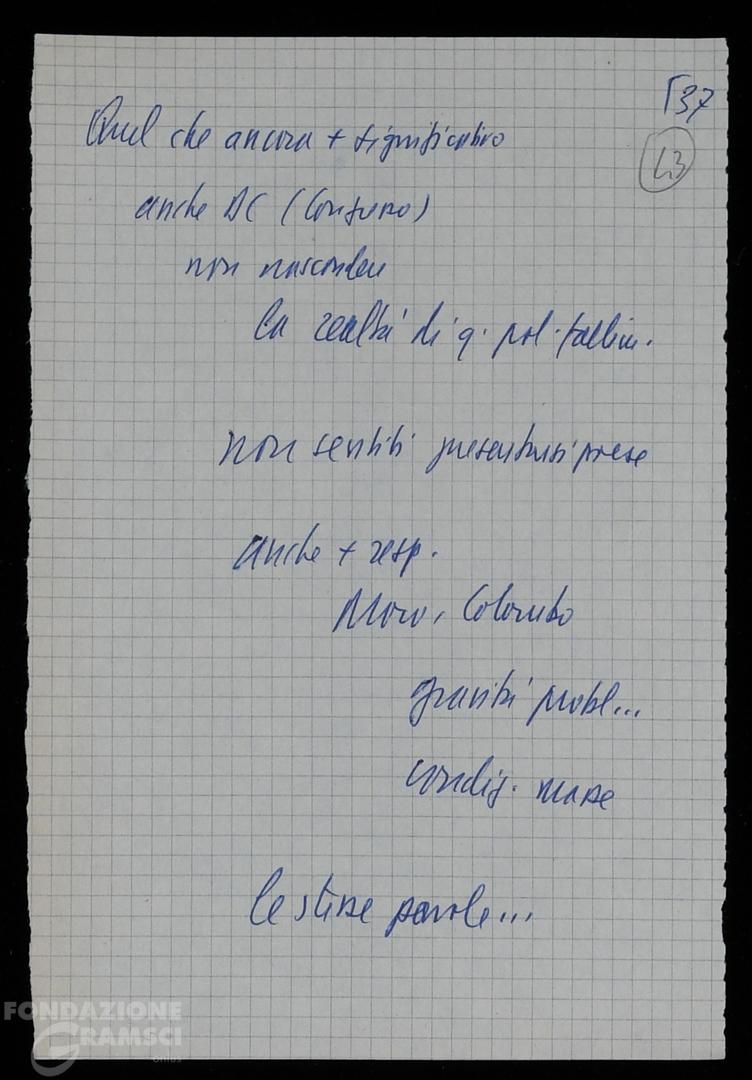 137
43
Quel che ancora + significativo
anche DC (Congresso)
non nascondere
la realtà di q. pol. fallim.
non sentiti presentarsi paese
anche + resp.
Moro, Colombo
gravità probl...
condiz. masse
le stesse parole...
FONDAZIONE
GRAMSCI
onlus